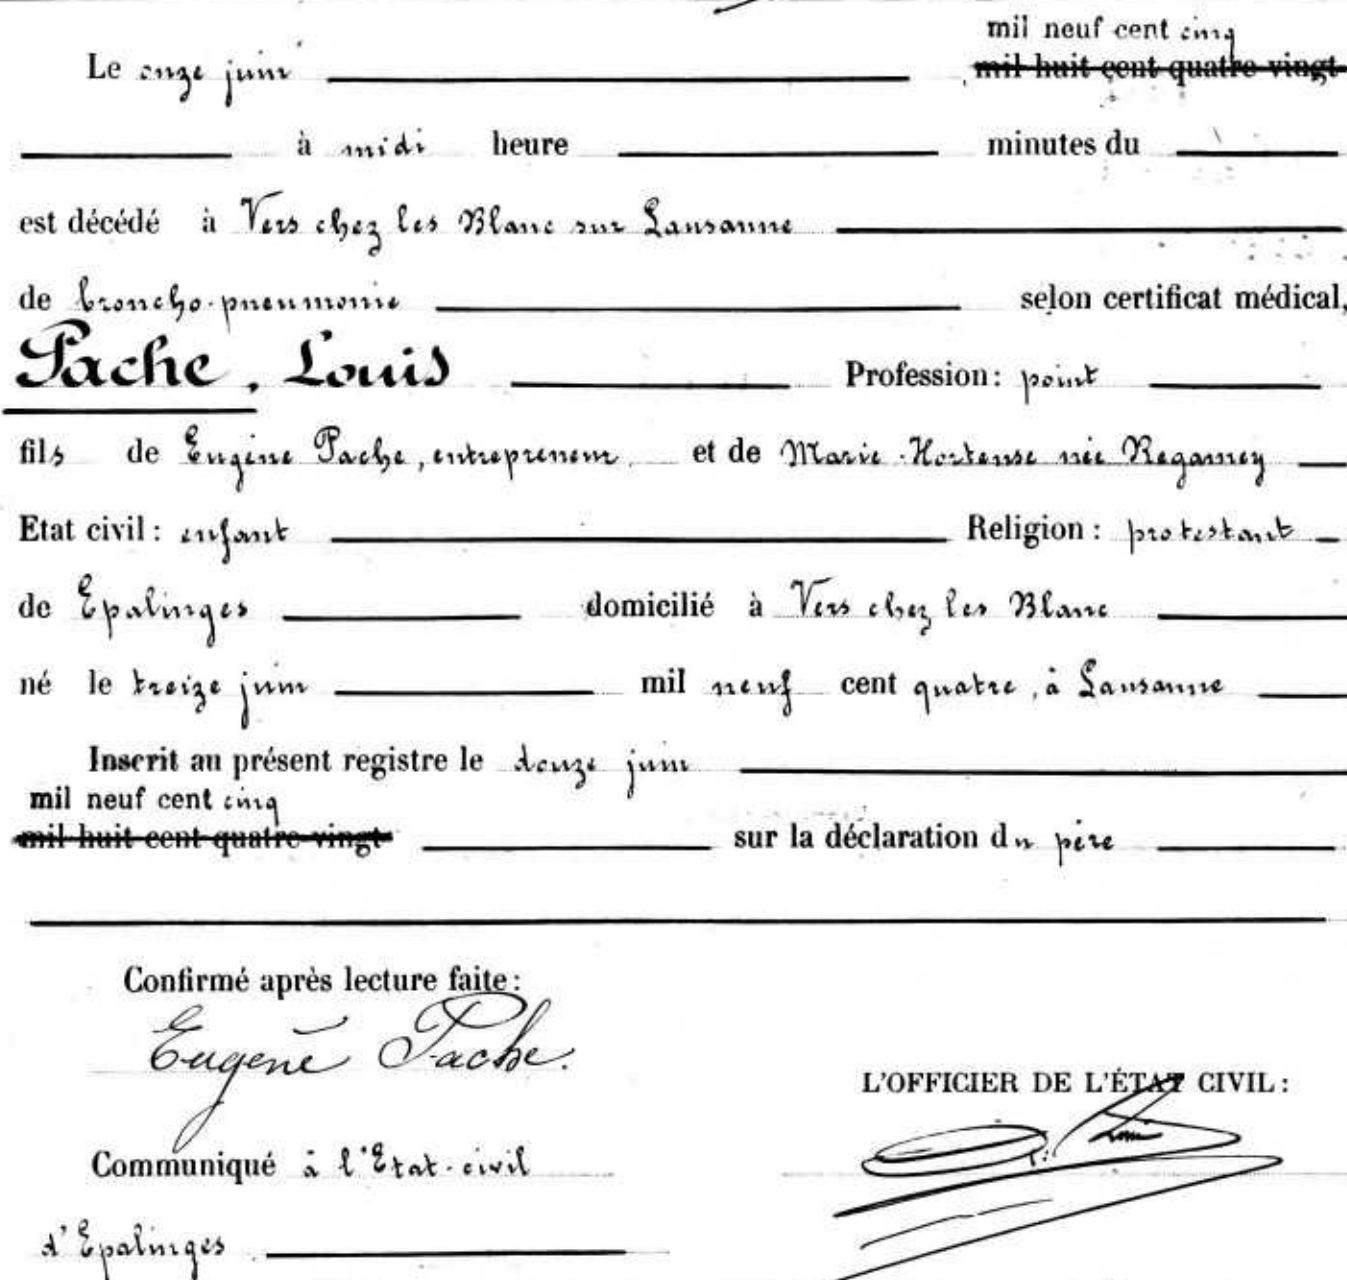 mil neuf cent cinq
Le onze juin mil huit cent quatre-vingt
à midi heure minutes du
est décédé à Vers chez les Blanc sur Lausanne
de broncho-pneumonie selon certificat médical,
Pache, Louis Profession: point
fils de Eugène Pache, entrepreneur et de Marie-Hortense née Regamey
Etat civil: enfant Religion: protestant
de Epalinges domicilié à Vers chez les Blanc
né le treize juin mil neuf cent quatre, à Lausanne
Inscrit au présent registre le douze juin
mil neuf cent cinq
mil huit cent quatre-vingt sur la déclaration du père
Confirmé après lecture faite:
Eugène Pache.
L'OFFICIER DE L'ÉTAT CIVIL:
Communiqué à l'Etat-civil
d'Epalinges